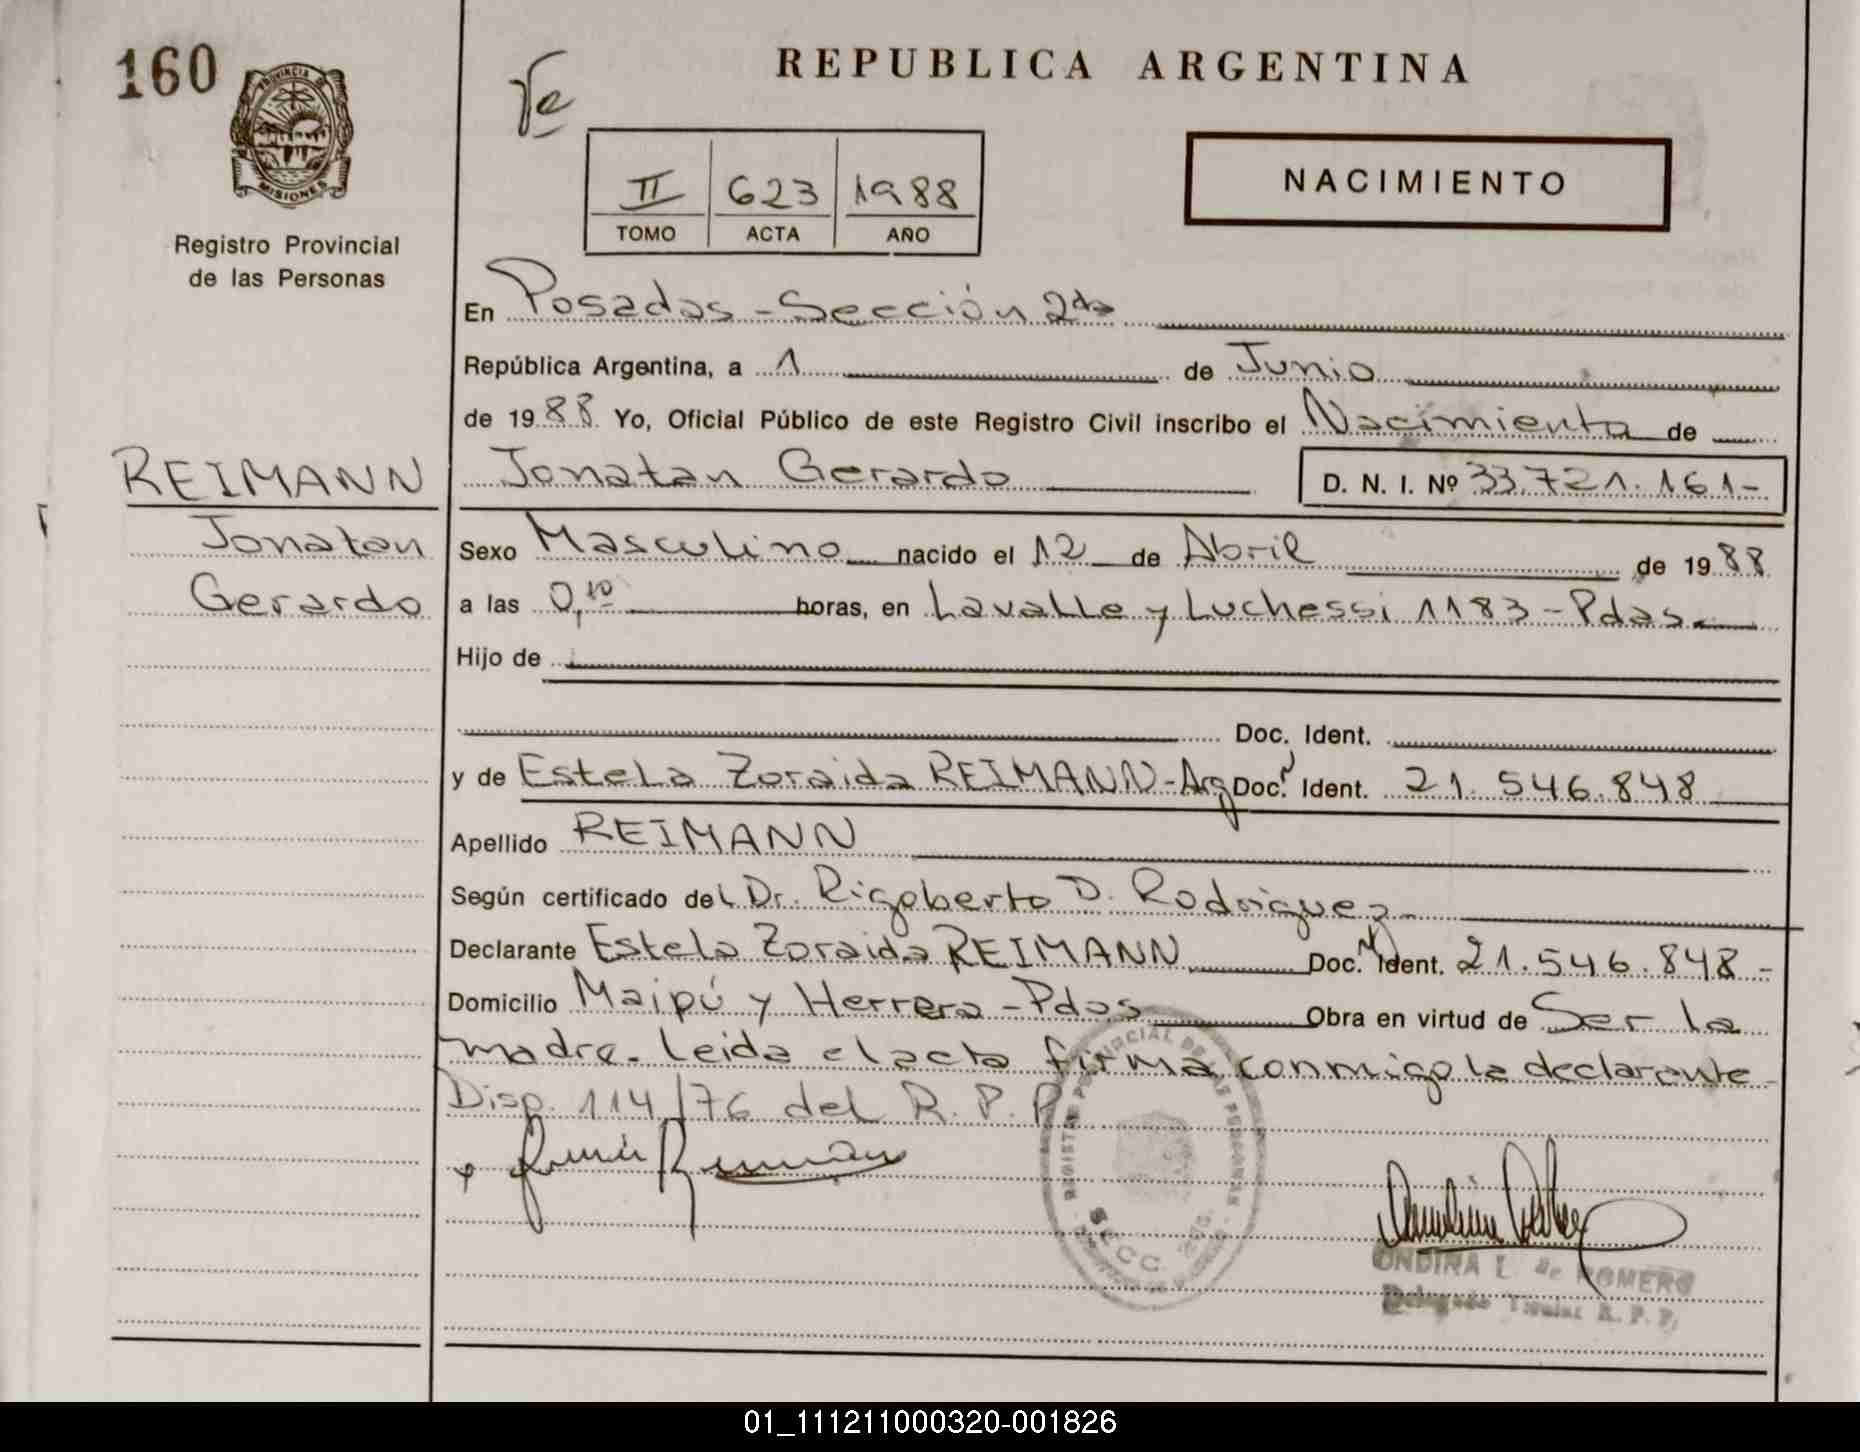 160
REPUBLICA ARGENTINA
PROVINCIA DE
MISIONES
Registro Provincial
de las Personas
NACIMIENTO
II 623 1988
TOMO ACTA AÑO
En Posadas - Sección 2da
República Argentina, a 1 de Junio
de 1988 Yo, Oficial Público de este Registro Civil inscribo el Nacimiento de
REIMANN
Jonatan
Gerardo
Jonatan Gerardo D. N. I. Nº 33.721.161-
Sexo Masculino nacido el 12 de Abril de 1988
a las 0,10 horas, en Lavalle y Luchessi 1183 - Pdas.
Hijo de
Doc. Ident.
y de Estela Zoraida REIMANN - Arg Doc. Ident. 21.546.848
Apellido REIMANN
Según certificado del Dr. Rigoberto D. Rodriguez
Declarante Estela Zoraida REIMANN Doc. Ident. 21.546.848 -
Domicilio Maipú y Herrera - Pdas Obra en virtud de Ser la
madre. Leida el acta firma conmigo la declarante
Disp. 114/76 del R. P. P.
REGISTRO PROVINCIAL DE LAS PERSONAS
SECC. 2da.
ONDINA L. de ROMERO
Delegada Titular R. P. P.
01_111211000320-001826